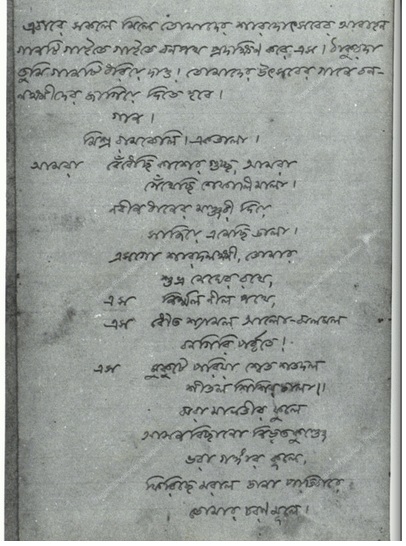 এবারে সকলে মিলে তোমাদের শারদোৎসবের আবাহন
গানটি গাইতে গাইতে বনপথ প্রদক্ষিণ করে এস। ঠাকুরদা
তুমি গানটি ধরিয়ে দাও। তোমাদের উৎসবের গানে বন-
লক্ষ্মীদের জাগিয়ে দিতে হবে।
গান।
মিশ্র রামকেলি। একতালা।
আমরা বেঁধেছি কাশের গুচ্ছ, আমরা
গেঁথেছি শেফালীমালা।
নবীন ধানের মঞ্জরী দিয়ে
সাজিয়ে এনেছি ডালা।
এসগো শারদলক্ষ্মী, তোমার
শুভ্র মেঘের রথে,
এস নির্ম্মল নীল পথে,
এস ধৌত শ্যামল আলো-ঝলমল
বনগিরি পর্ব্বতে।
এস মুকুটে পরিয়া শ্বেত শতদল
শীতল শিশির ঢালা।
ঝরা মালতীর ফুলে
আসন বিছানো নিভৃত কুঞ্জে
ভরা গঙ্গার কূলে,
ফিরিছে মরাল ডানা পাতিবারে
তোমার চরণমূলে।